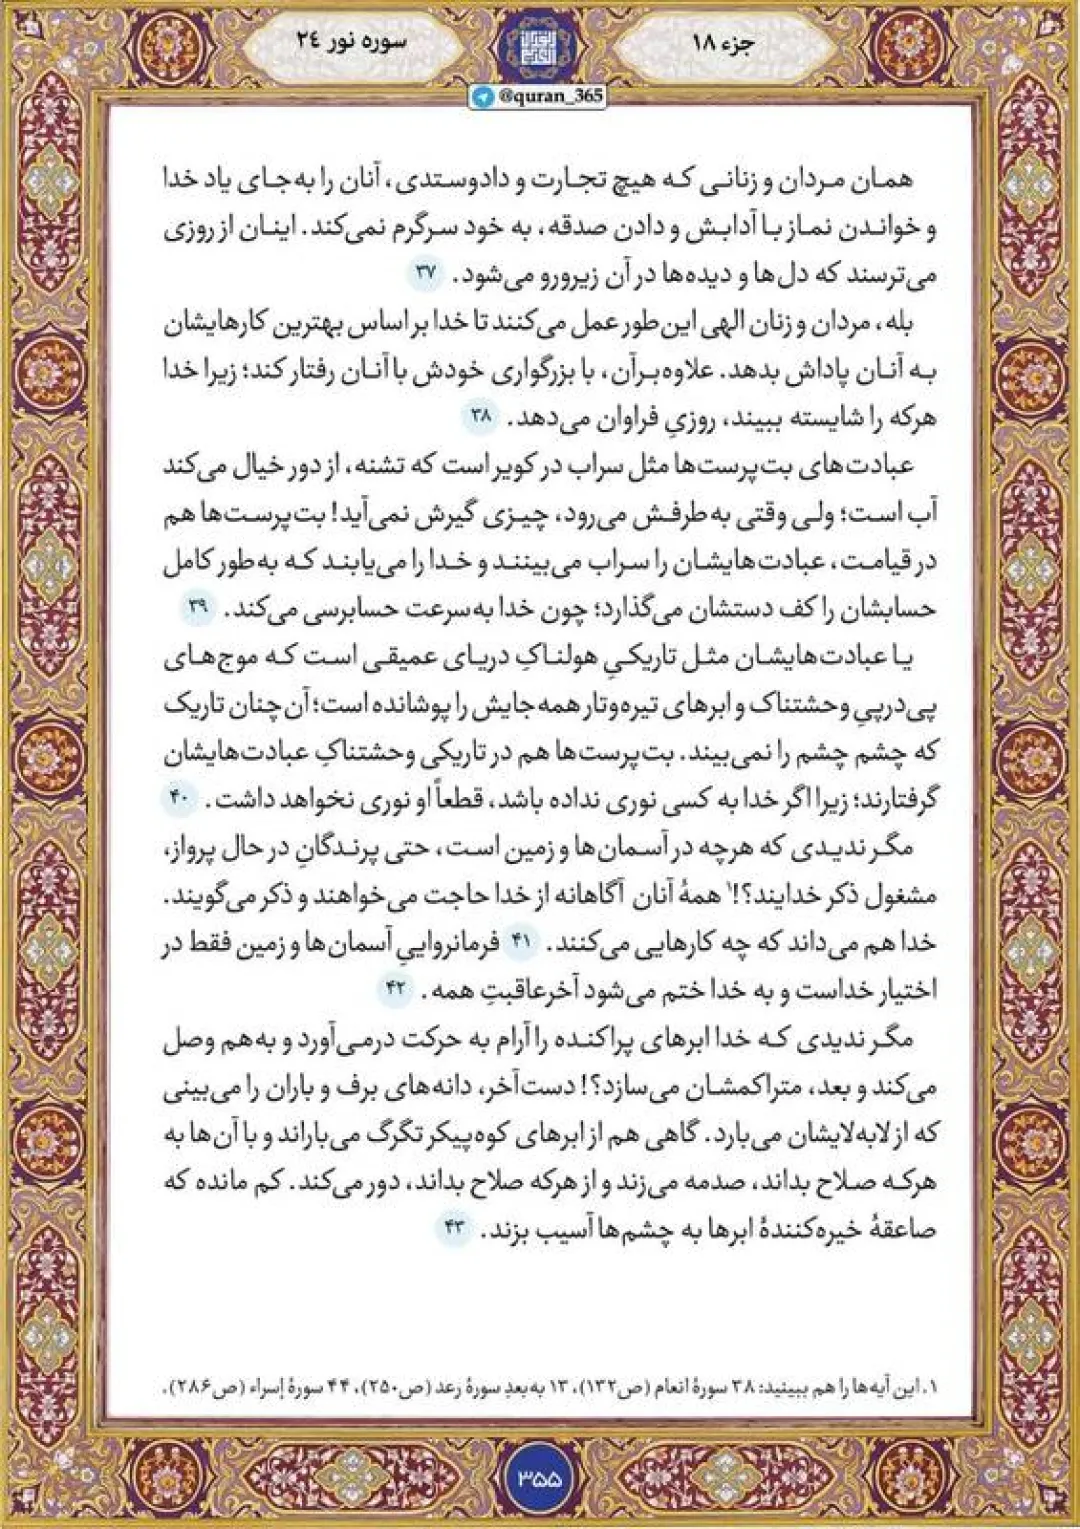 جزء ۱۸
سوره نور ۲٤
@quran_365
همان مردان و زنانی که هیچ تجارت و دادوستدی، آنان را به‌جای یاد خدا
و خواندن نماز با آدابش و دادن صدقه، به خود سرگرم نمی‌کند. اینان از روزی
می‌ترسند که دل‌ها و دیده‌ها در آن زیرورو می‌شود. ۳۷
بله، مردان و زنان الهی این‌طور عمل می‌کنند تا خدا بر اساس بهترین کارهایشان
به آنان پاداش بدهد. علاوه‌برآن، با بزرگواری خودش با آنان رفتار کند؛ زیرا خدا
هرکه را شایسته ببیند، روزیِ فراوان می‌دهد. ۳۸
عبادت‌های بت‌پرست‌ها مثل سراب در کویر است که تشنه، از دور خیال می‌کند
آب است؛ ولی وقتی به‌طرفش می‌رود، چیزی گیرش نمی‌آید! بت‌پرست‌ها هم
در قیامت، عبادت‌هایشان را سراب می‌بینند و خدا را می‌یابند که به‌طور کامل
حسابشان را کف دستشان می‌گذارد؛ چون خدا به‌سرعت حسابرسی می‌کند. ۳۹
یا عبادت‌هایشان مثل تاریکیِ هولناکِ دریای عمیقی است که موج‌های
پی‌درپیِ وحشتناک و ابرهای تیره‌وتار همه‌جایش را پوشانده است؛ آن‌چنان تاریک
که چشم چشم را نمی‌بیند. بت‌پرست‌ها هم در تاریکی وحشتناکِ عبادت‌هایشان
گرفتارند؛ زیرا اگر خدا به کسی نوری نداده باشد، قطعاً او نوری نخواهد داشت. ۴۰
مگر ندیدی که هرچه در آسمان‌ها و زمین است، حتی پرندگانِ در حال پرواز،
مشغول ذکر خدایند؟!۱ همهٔ آنان آگاهانه از خدا حاجت می‌خواهند و ذکر می‌گویند.
خدا هم می‌داند که چه کارهایی می‌کنند. ۴۱ فرمانرواییِ آسمان‌ها و زمین فقط در
اختیار خداست و به خدا ختم می‌شود آخرعاقبتِ همه. ۴۲
مگر ندیدی که خدا ابرهای پراکنده را آرام به حرکت درمی‌آورد و به‌هم وصل
می‌کند و بعد، متراکمشان می‌سازد؟! دست‌آخر، دانه‌های برف و باران را می‌بینی
که از لابه‌لایشان می‌بارد. گاهی هم از ابرهای کوه‌پیکر تگرگ می‌باراند و با آن‌ها به
هرکه صلاح بداند، صدمه می‌زند و از هرکه صلاح بداند، دور می‌کند. کم مانده که
صاعقهٔ خیره‌کنندهٔ ابرها به چشم‌ها آسیب بزند. ۴۳
۱. این آیه‌ها را هم ببینید: ۳۸ سورهٔ انعام (ص۱۳۲)، ۱۳ به‌بعدِ سورهٔ رعد (ص۲۵۰)، ۴۴ سورهٔ إسراء (ص۲۸۶).
۳۵۵